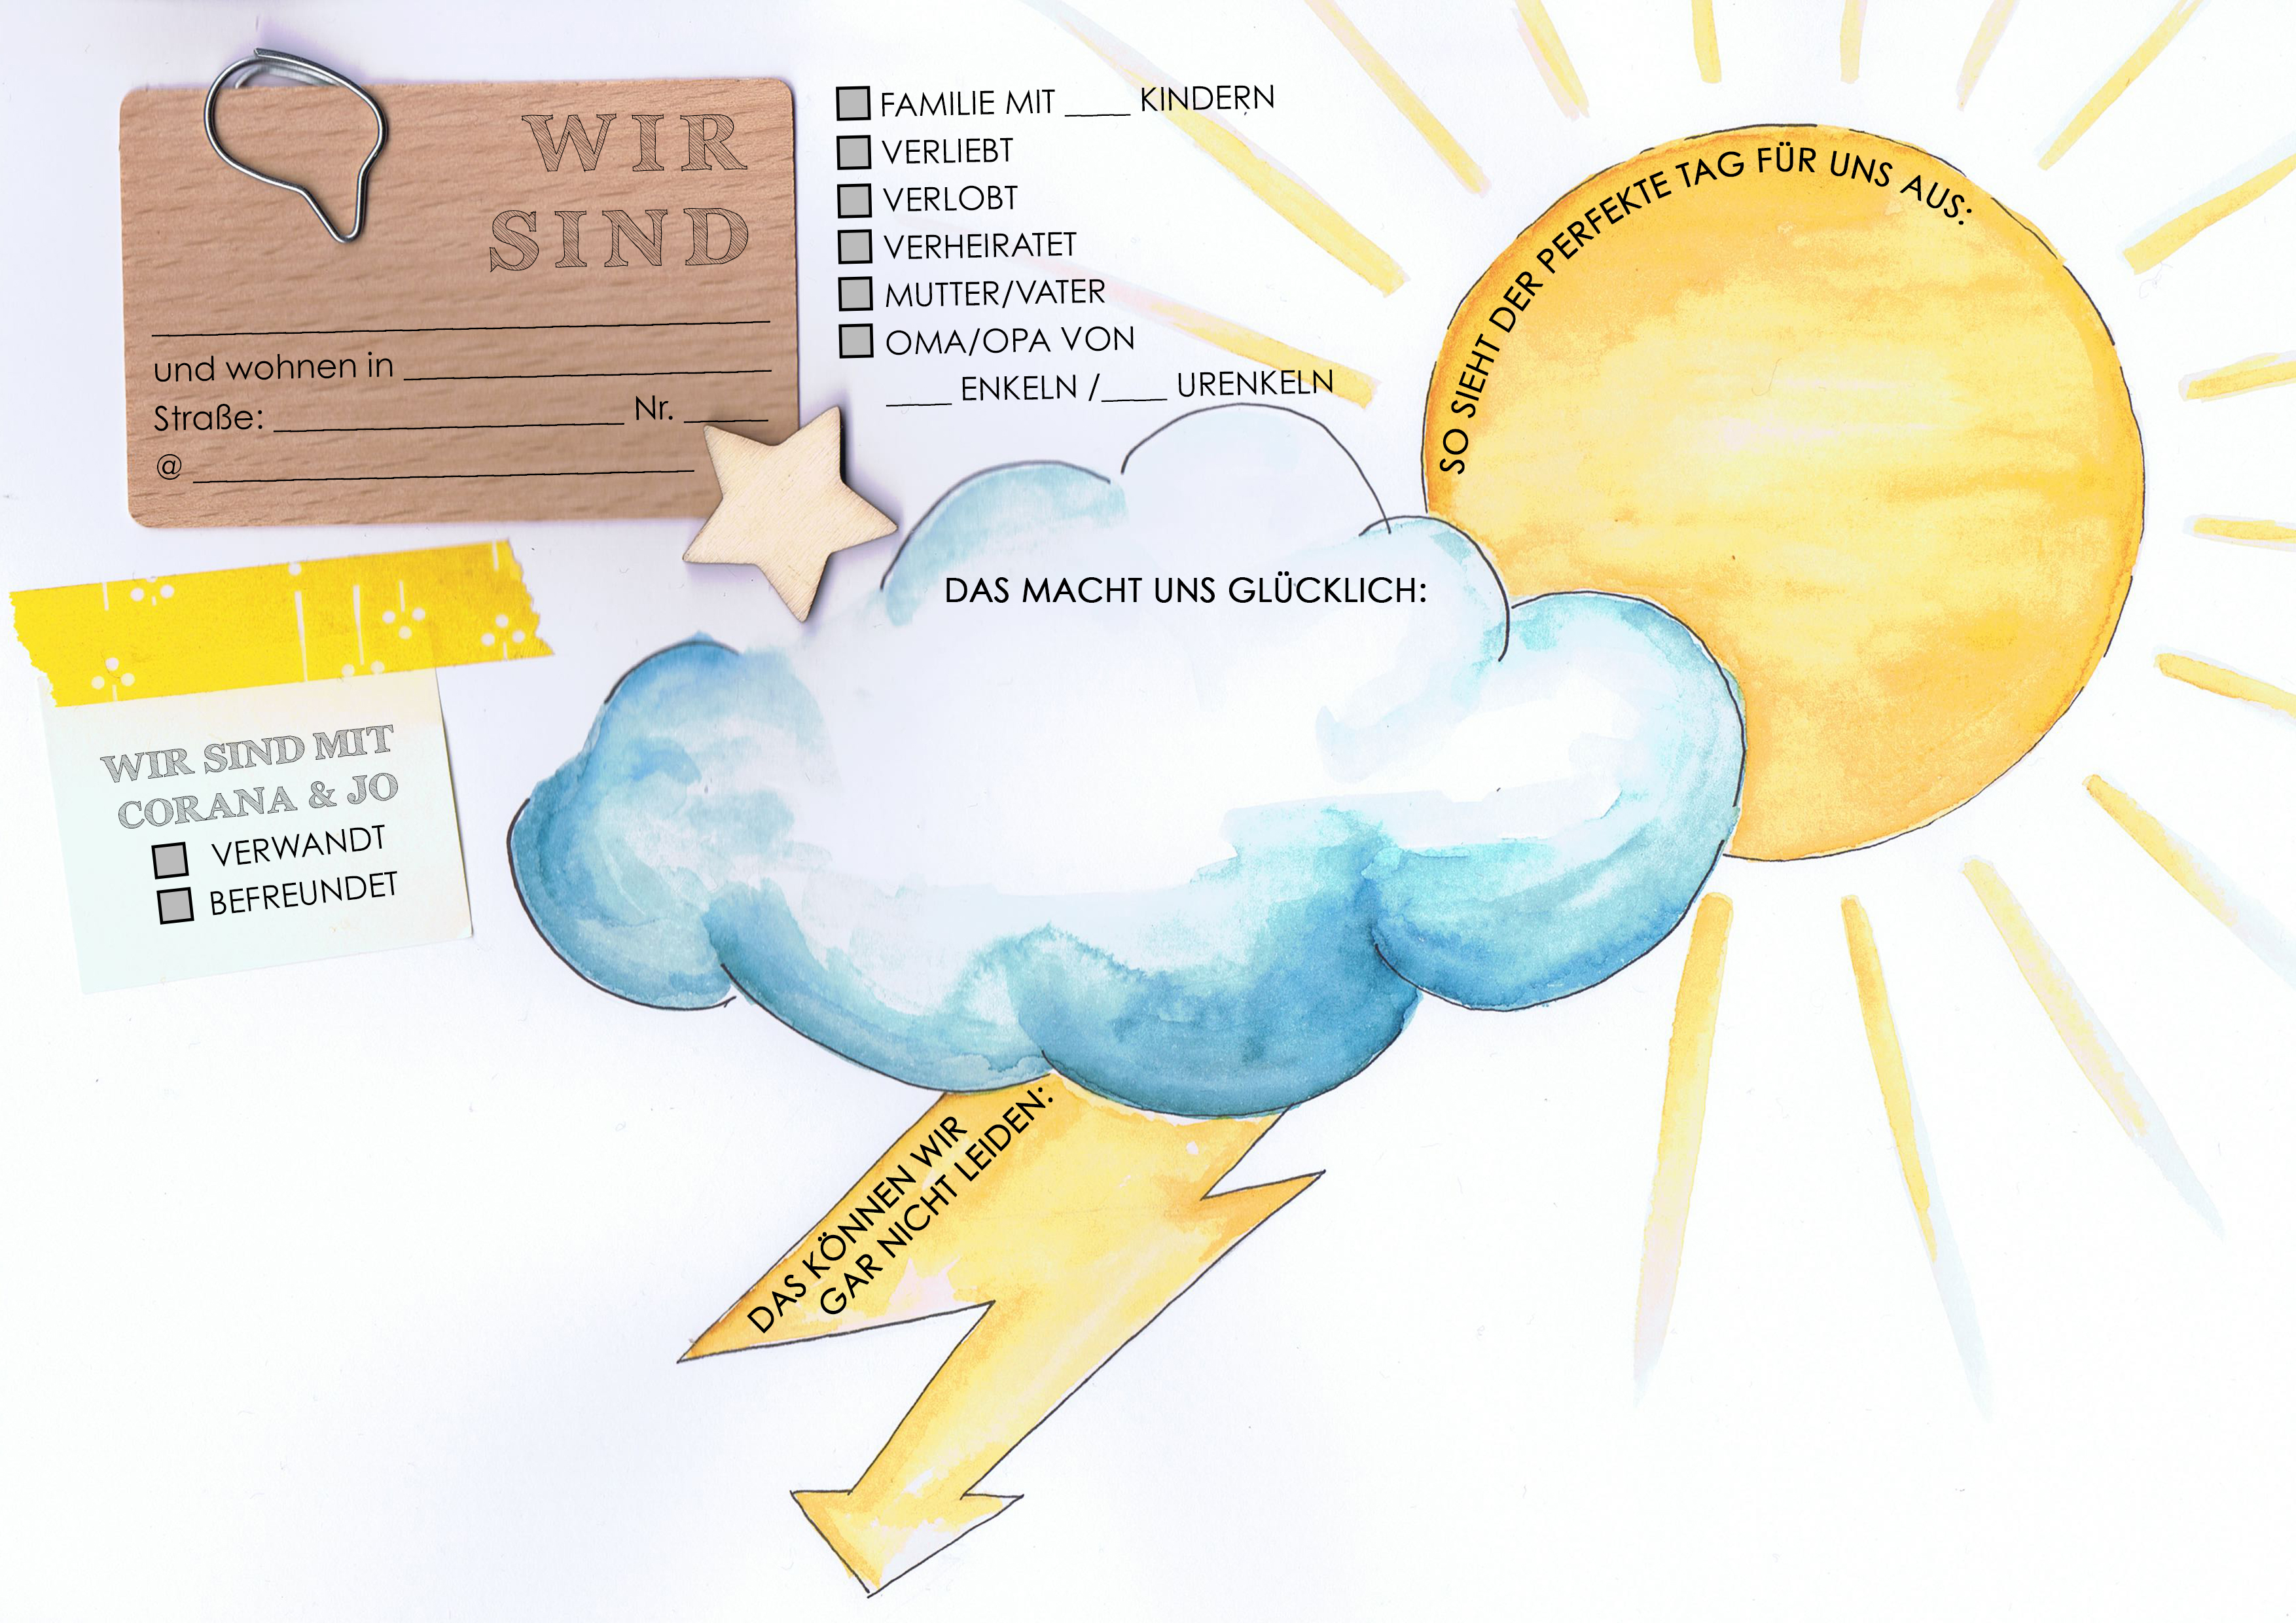 WIR
SIND
und wohnen in ____
Straße: ____ Nr. ____
@ ____
FAMILIE MIT ____ KINDERN
VERLIEBT
VERLOBT
VERHEIRATET
MUTTER/VATER
OMA/OPA VON
____ ENKELN /____ URENKELN
SO SIEHT DER PERFEKTE TAG FÜR UNS AUS:
DAS MACHT UNS GLÜCKLICH:
WIR SIND MIT
CORANA & JO
VERWANDT
BEFREUNDET
DAS KÖNNEN WIR
GAR NICHT LEIDEN: